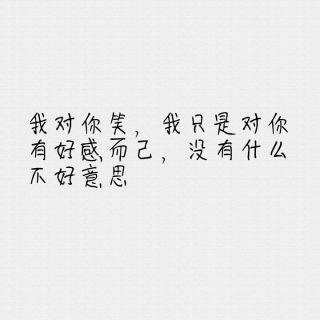 我对你笑，我只是对你
有好感而己，没有什么
不好意思